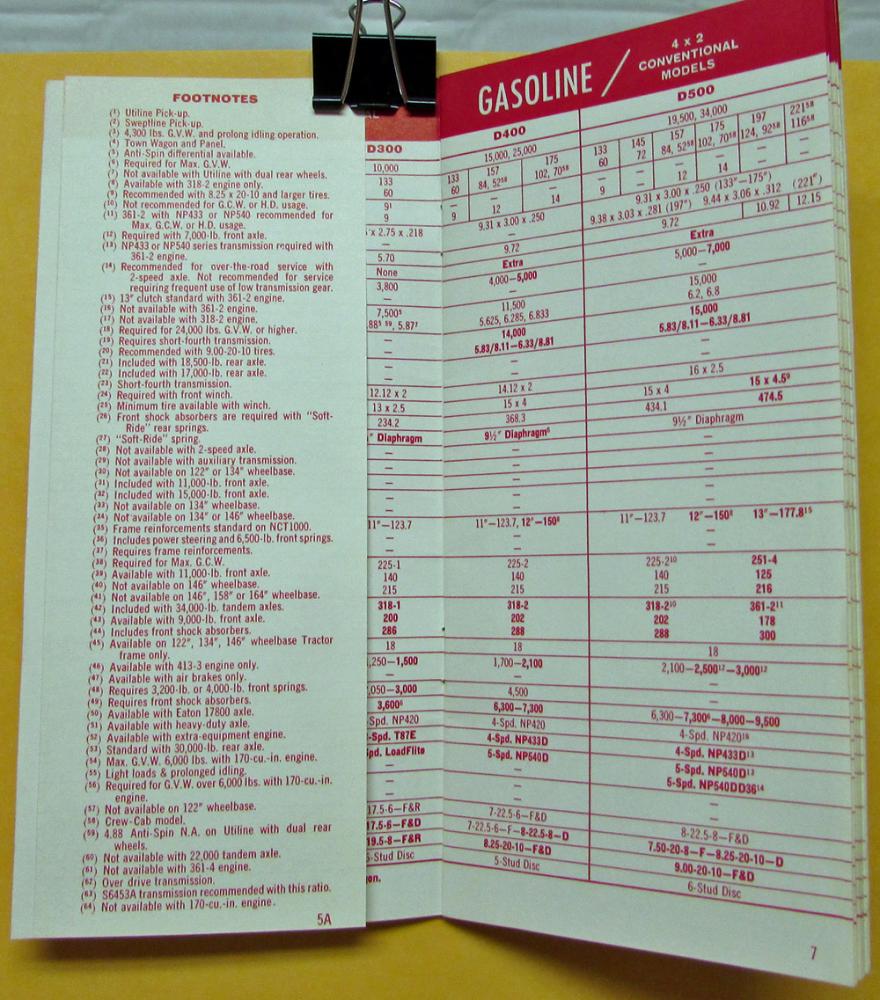 FOOTNOTES
(1) Utiline Pick-up.
(2) Sweptline Pick-up.
(3) 4,300 lbs. G.V.W. and prolong idling operation.
(4) Town Wagon and Panel.
(5) Anti-Spin differential available.
(6) Required for Max. G.V.W.
(7) Not available with Utiline with dual rear wheels.
(8) Available with 318-2 engine only.
(9) Recommended with 8.25 x 20-10 and larger tires.
(10) Not recommended for G.C.W. or H.D. usage.
(11) 361-2 with NP433 or NP540 recommended for
Max. G.C.W. or H.D. usage.
(12) Required with 7,000-lb. front axle.
(13) NP433 or NP540 series transmission required with
361-2 engine.
(14) Recommended for over-the-road service with
2-speed axle. Not recommended for service
requiring frequent use of low transmission gear.
(15) 13" clutch standard with 361-2 engine.
(16) Not available with 361-2 engine.
(17) Not available with 318-2 engine.
(18) Required for 24,000 lbs. G.V.W. or higher.
(19) Requires short-fourth transmission.
(20) Recommended with 9.00-20-10 tires.
(21) Included with 18,500-lb. rear axle.
(22) Included with 17,000-lb. rear axle.
(23) Short-fourth transmission.
(24) Required with front winch.
(25) Minimum tire available with winch.
(26) Front shock absorbers are required with "Soft-
Ride" rear springs.
(27) "Soft-Ride" spring.
(28) Not available with 2-speed axle.
(29) Not available with auxiliary transmission.
(30) Not available on 122" or 134" wheelbase.
(31) Included with 11,000-lb. front axle.
(32) Included with 15,000-lb. front axle.
(33) Not available on 134" wheelbase.
(34) Not available on 134" or 146" wheelbase.
(35) Frame reinforcements standard on NCT1000.
(36) Includes power steering and 6,500-lb. front springs.
(37) Requires frame reinforcements.
(38) Required for Max. G.C.W.
(39) Available with 11,000-lb. front axle.
(40) Not available on 146" wheelbase.
(41) Not available on 146", 158" or 164" wheelbase.
(42) Included with 34,000-lb. tandem axles.
(43) Available with 9,000-lb. front axle.
(44) Includes front shock absorbers.
(45) Available on 122", 134", 146" wheelbase Tractor
frame only.
(46) Available with 413-3 engine only.
(47) Available with air brakes only.
(48) Requires 3,200-lb. or 4,000-lb. front springs.
(49) Requires front shock absorbers.
(50) Available with Eaton 17800 axle.
(51) Available with heavy-duty axle.
(52) Available with extra-equipment engine.
(53) Standard with 30,000-lb. rear axle.
(54) Max. G.V.W. 6,000 lbs. with 170-cu.-in. engine.
(55) Light loads & prolonged idling.
(56) Required for G.V.W. over 6,000 lbs. with 170-cu.-in.
engine.
(57) Not available on 122" wheelbase.
(58) Crew-Cab model.
(59) 4.88 Anti-Spin N.A. on Utiline with dual rear
wheels.
(60) Not available with 22,000 tandem axle.
(61) Not available with 361-4 engine.
(62) Over drive transmission.
(63) S6453A transmission recommended with this ratio.
(64) Not available with 170-cu.-in. engine.
5A
GASOLINE / 4 x 2
CONVENTIONAL
MODELS
D300 D400 D500
10,000 15,000, 25,000 19,500, 34,000
133 133 157 175 133 145 157 175 197 221⁵⁸
60 60 84, 52⁵⁸ 102, 70⁵⁸ 60 72 84, 52⁵⁸ 102, 70⁵⁸ 124, 92⁵⁸ 116⁵⁸
9¹ — 12 14 — — 12 14 — —
9 9 — — 9 — — — — —
x 2.75 x .218 9.31 x 3.00 x .250 9.31 x 3.00 x .250 (133"—175")
9.38 x 3.03 x .281 (197") 9.44 x 3.06 x .312 (221")
— 9.72 9.72 10.92 12.15
5.70 Extra Extra
None 4,000–5,000 5,000–7,000
3,800 — —
7,500⁵ 11,500 15,000
.88⁵ ⁵⁹, 5.87⁷ 5.625, 6.285, 6.833 6.2, 6.8
— 14,000 15,000
— 5.83/8.11—6.33/8.81 5.83/8.11—6.33/8.81
— — —
— — —
12.12 x 2 14.12 x 2 16 x 2.5
13 x 2.5 15 x 4 15 x 4 15 x 4.5⁹
234.2 368.3 434.1 474.5
" Diaphragm 9½" Diaphragm⁶ 9½" Diaphragm
— — —
— — —
— — —
— — —
— — —
11"—123.7 11"—123.7, 12"—150⁸ 11"—123.7 12"—150⁸ 13"—177.8¹⁵
— — —
— — —
225-1 225-2 225-2¹⁰ 251-4
140 140 140 125
215 215 215 216
318-1 318-2 318-2¹⁰ 361-2¹¹
200 202 202 178
286 288 288 300
18 18 18
,250—1,500 1,700—2,100 2,100—2,500¹²—3,000¹²
— — —
,050—3,000 4,500 —
3,600⁶ 6,300—7,300 6,300—7,300⁶—8,000—9,500
-Spd. NP420 4-Spd. NP420 4-Spd. NP420¹⁶
-Spd. T87E 4-Spd. NP433D 4-Spd. NP433D¹³
pd. LoadFlite 5-Spd. NP540D 5-Spd. NP540D¹³
— — 5-Spd. NP540DD36¹⁴
— — —
— — —
17.5-6—F&R 7-22.5-6—F&D 8-22.5-8—F&D
17.5-6—F&D 7-22.5-6—F—8-22.5-8—D 7.50-20-8—F—8.25-20-10—D
19.5-8—F&R 8.25-20-10—F&D 9.00-20-10—F&D
5-Stud Disc 5-Stud Disc 6-Stud Disc
on.
7